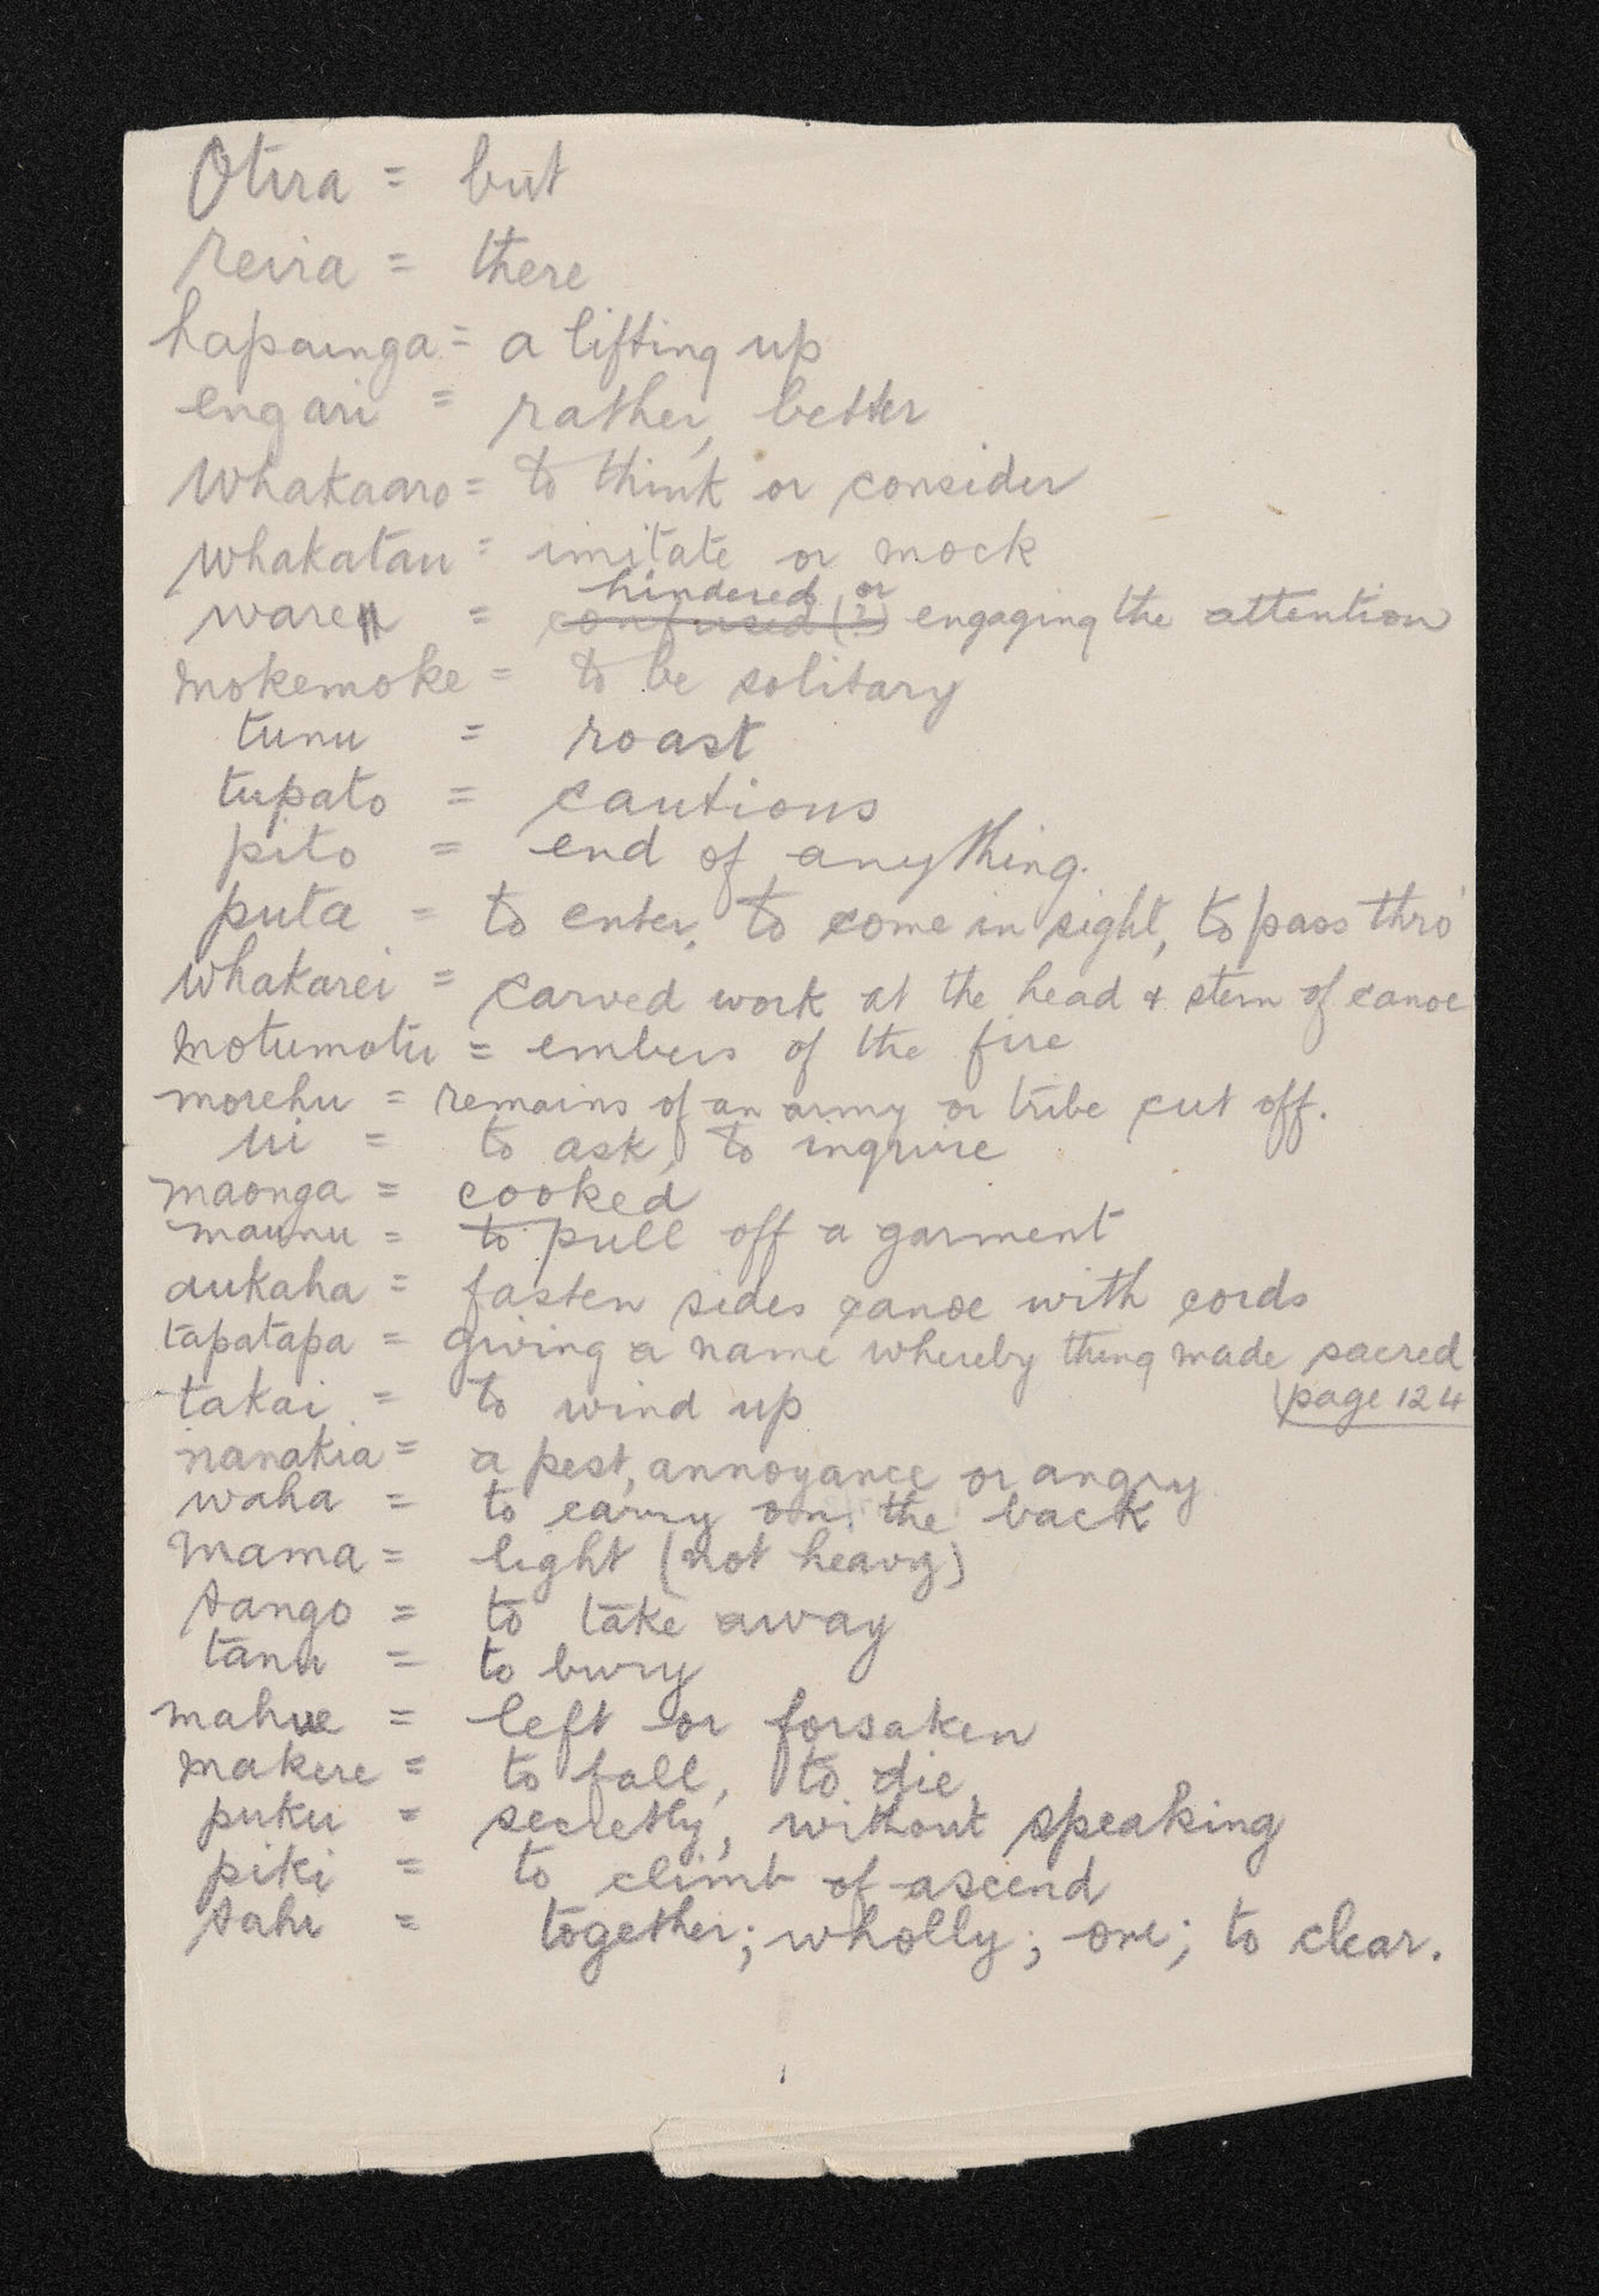 Otira = but
reira = there
hapainga = a lifting up
engari = rather, better
whakaaro = to think or consider
whakatau = imitate or mock
hindered or
ware = confused (?) engaging the attention
mokemoke = to be solitary
tunu = roast
tupato = cautious
pito = end of anything.
puta = to enter, to come in sight, to pass thro'
whakarei = carved work at the head & stern of canoe
motumotu = embers of the fire
morehu = remains of an army or tribe cut off.
ui = to ask, to inquire
maonga = cooked
maunu = to pull off a garment
aukaha = fasten sides canoe with cords
tapatapa = giving a name whereby thing made sacred
(page 124
takai = to wind up
nanakia = a pest, annoyance or angry
waha = to carry on the back
mama = light (not heavy)
tango = to take away
tanu = to bury
mahue = left or forsaken
makere = to fall, to die,
puku = secretly, without speaking
piki = to climb of ascend
tahi = together; wholly; one; to clear.